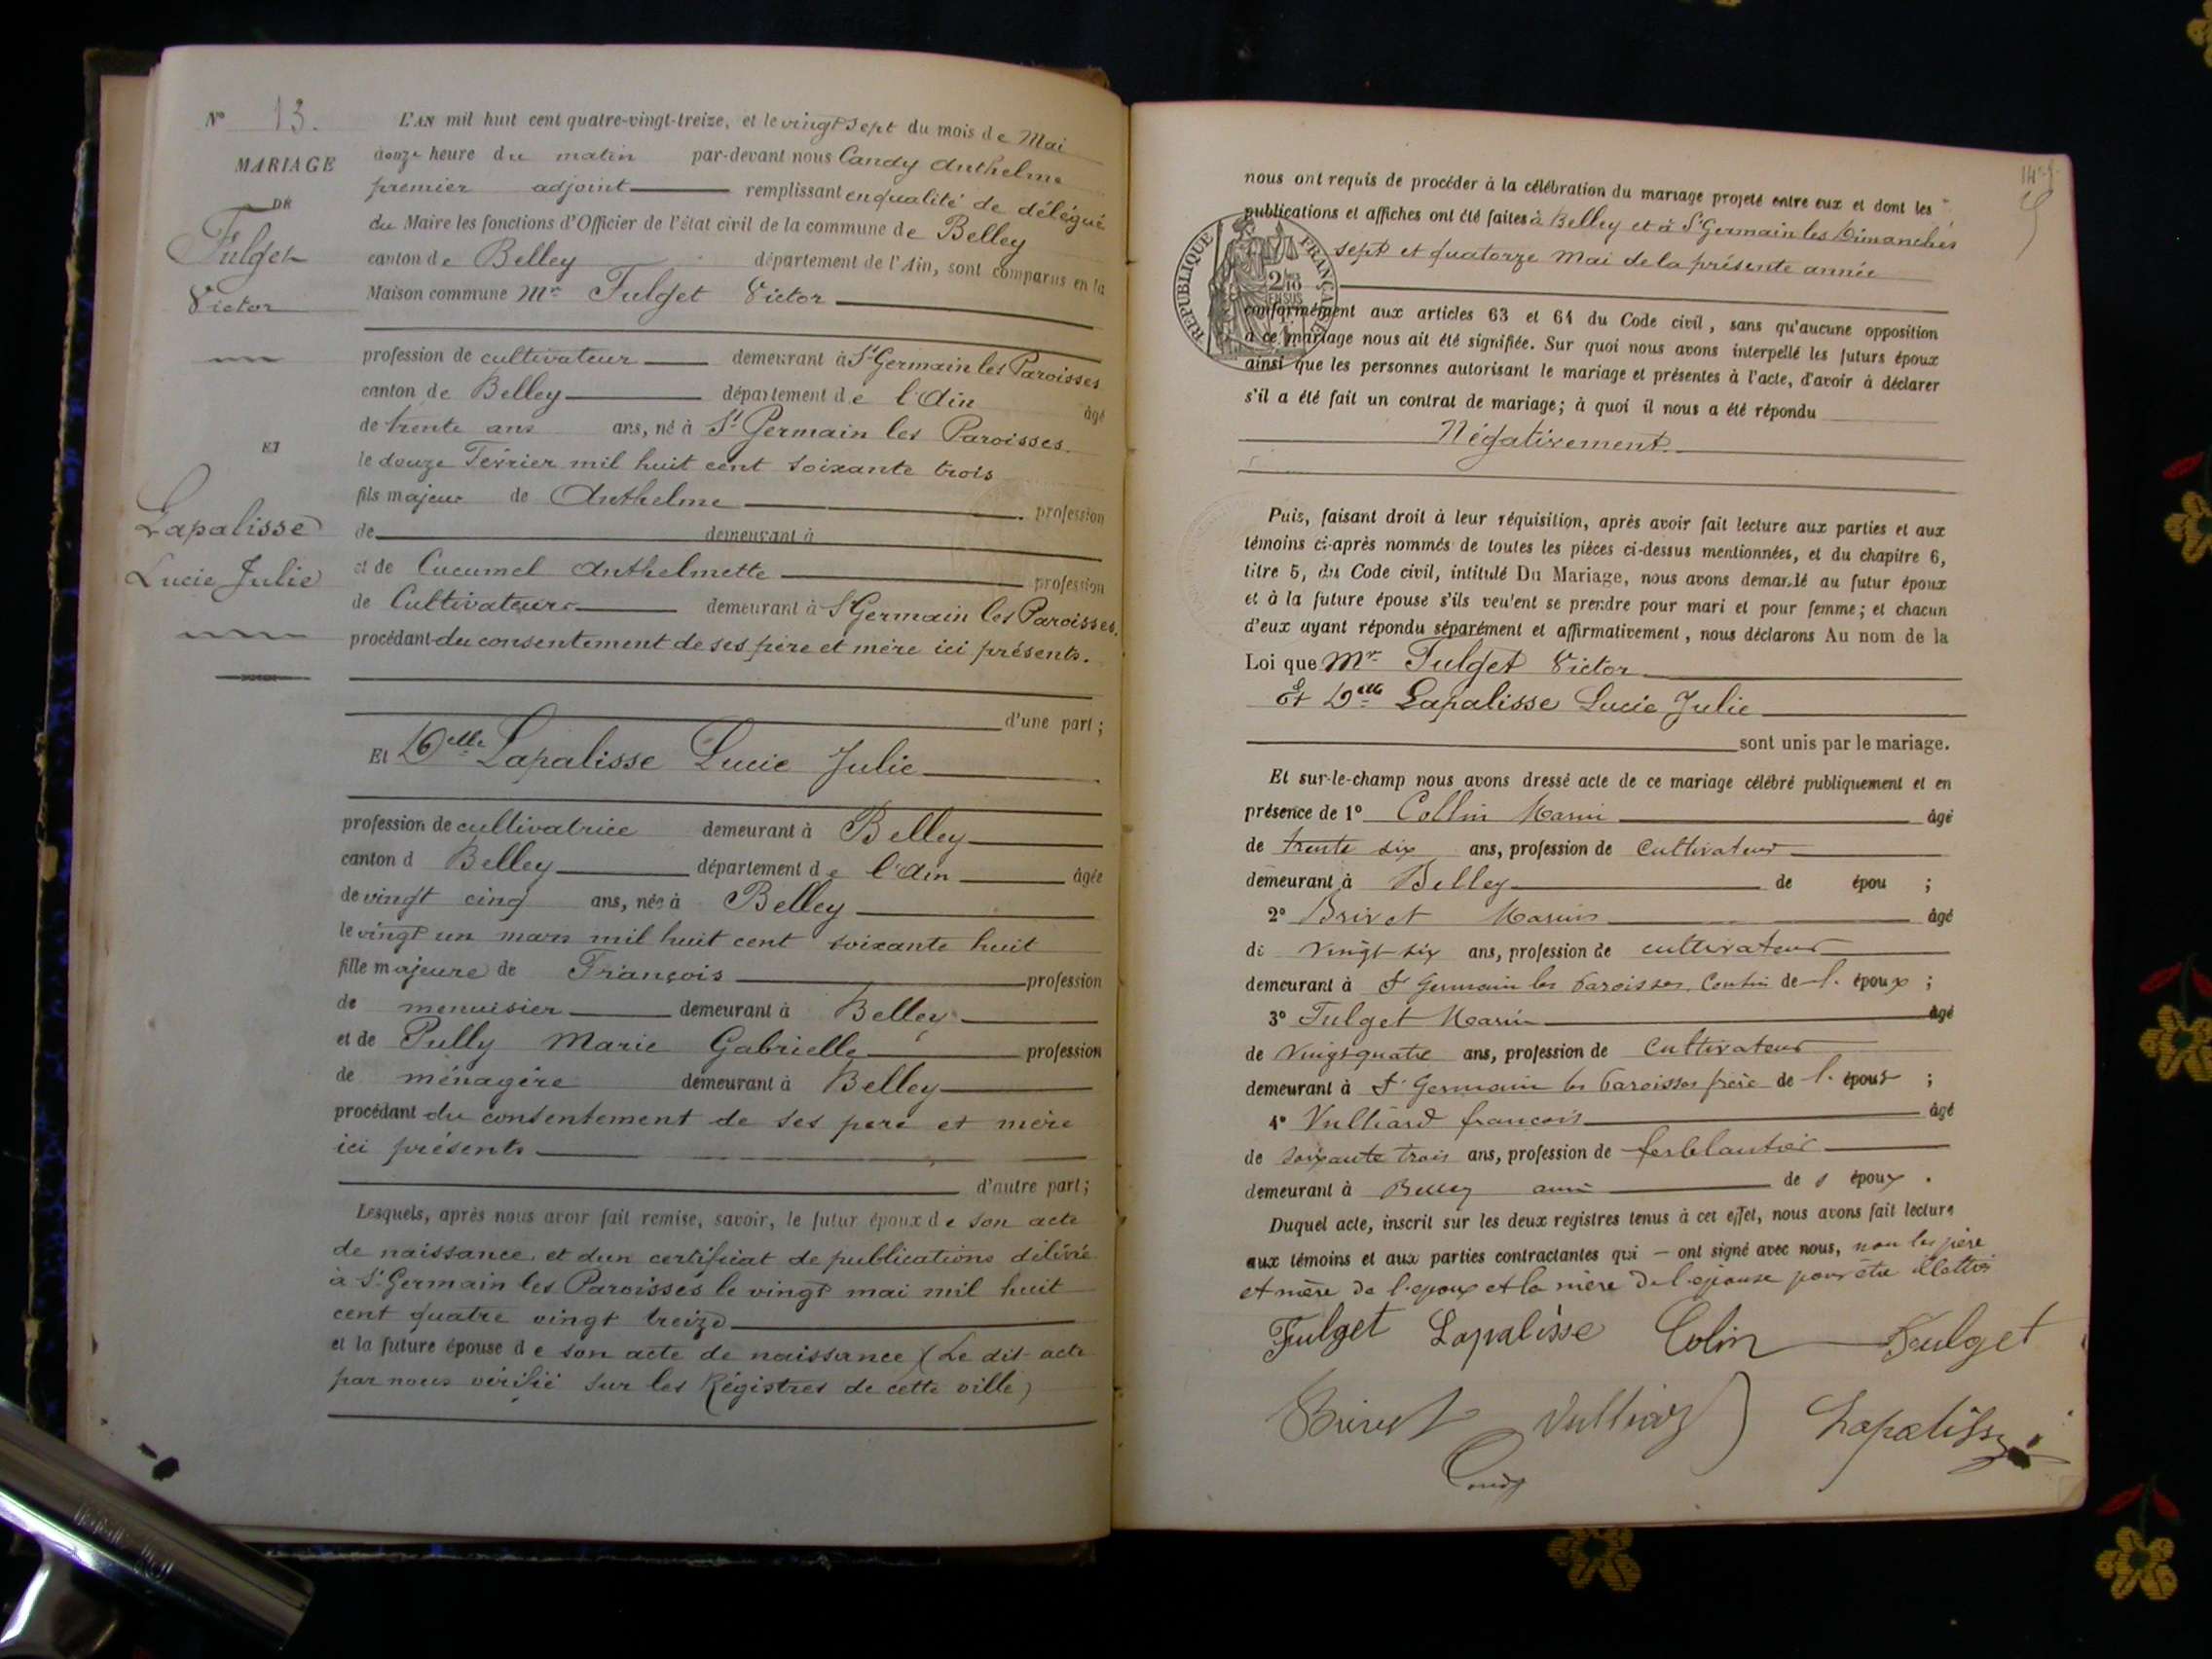 N° 13.
MARIAGE
DE
Fulget
Victor
ET
Lapalisse
Lucie Julie
L'AN mil huit cent quatre-vingt-treize, et le vingt sept du mois de Mai
à onze heure du matin par-devant nous Candy Anthelme
premier adjoint remplissant en qualité de délégué
du Maire les fonctions d'Officier de l'état civil de la commune de Belley
canton de Belley département de l'Ain, sont comparus en la
Maison commune Mr Fulget Victor
profession de cultivateur demeurant à St Germain les Paroisses
canton de Belley département de l'Ain âgé
de trente ans ans, né à St Germain les Paroisses.
le douze Février mil huit cent soixante trois
fils majeur de Anthelme profession
de demeurant à
et de Cucumel Anthelmette profession
de Cultivateurs demeurant à St Germain les Paroisses.
procédant du consentement de ses père et mère ici présents.
d'une part ;
Et Delle Lapalisse Lucie Julie
profession de cultivatrice demeurant à Belley
canton d Belley département de l'Ain âgée
de vingt cinq ans, née à Belley
le vingt un mars mil huit cent soixante huit
fille majeure de François profession
de menuisier demeurant à Belley
et de Pully Marie Gabrielle profession
de ménagère demeurant à Belley
procédant du consentement de ses père et mère
ici présents
d'autre part ;
Lesquels, après nous avoir fait remise, savoir, le futur époux de son acte
de naissance, et d'un certificat de publications délivré
à St Germain les Paroisses le vingt mai mil huit
cent quatre vingt treize
et la future épouse de son acte de naissance (Le dit acte
par nous vérifié sur les Régistres de cette ville)
nous ont requis de procéder à la célébration du mariage projeté entre eux et dont les
publications et affiches ont été faites à Belley et à St Germain les Dimanches
sept et quatorze Mai de la présente année
REPUBLIQUE FRANÇAISE
conformément aux articles 63 et 64 du Code civil, sans qu'aucune opposition
à ce mariage nous ait été signifiée. Sur quoi nous avons interpellé les futurs époux
ainsi que les personnes autorisant le mariage et présentes à l'acte, d'avoir à déclarer
s'il a été fait un contrat de mariage ; à quoi il nous a été répondu
Négativement.
Puis, faisant droit à leur réquisition, après avoir fait lecture aux parties et aux
témoins ci-après nommés de toutes les pièces ci-dessus mentionnées, et du chapitre 6,
titre 5, du Code civil, intitulé Du Mariage, nous avons demandé au futur époux
et à la future épouse s'ils veulent se prendre pour mari et pour femme ; et chacun
d'eux ayant répondu séparément et affirmativement, nous déclarons Au nom de la
Loi que Mr Fulget Victor
Et Delle Lapalisse Lucie Julie
sont unis par le mariage.
Et sur-le-champ nous avons dressé acte de ce mariage célébré publiquement et en
présence de 1° Collin Marin âgé
de trente six ans, profession de Cultivateur
demeurant à Belley de épou ;
2° Brivet Marius âgé
de vingt six ans, profession de cultivateur
demeurant à St Germain les Paroisses Cousin de l. époux ;
3° Fulget Marin âgé
de vingt quatre ans, profession de Cultivateur
demeurant à St Germain les Paroisses frère de l. époux ;
4° Vulliard françois âgé
de soixante trois ans, profession de ferblantier
demeurant à Belley ami de l époux .
Duquel acte, inscrit sur les deux registres tenus à cet effet, nous avons fait lecture
aux témoins et aux parties contractantes qui – ont signé avec nous, non les père
et mère de l'époux et la mère de l'épouse pour être illettrés
Fulget Lapalisse Colin Fulget
Brivet Vulliard Lapalisse
Candy